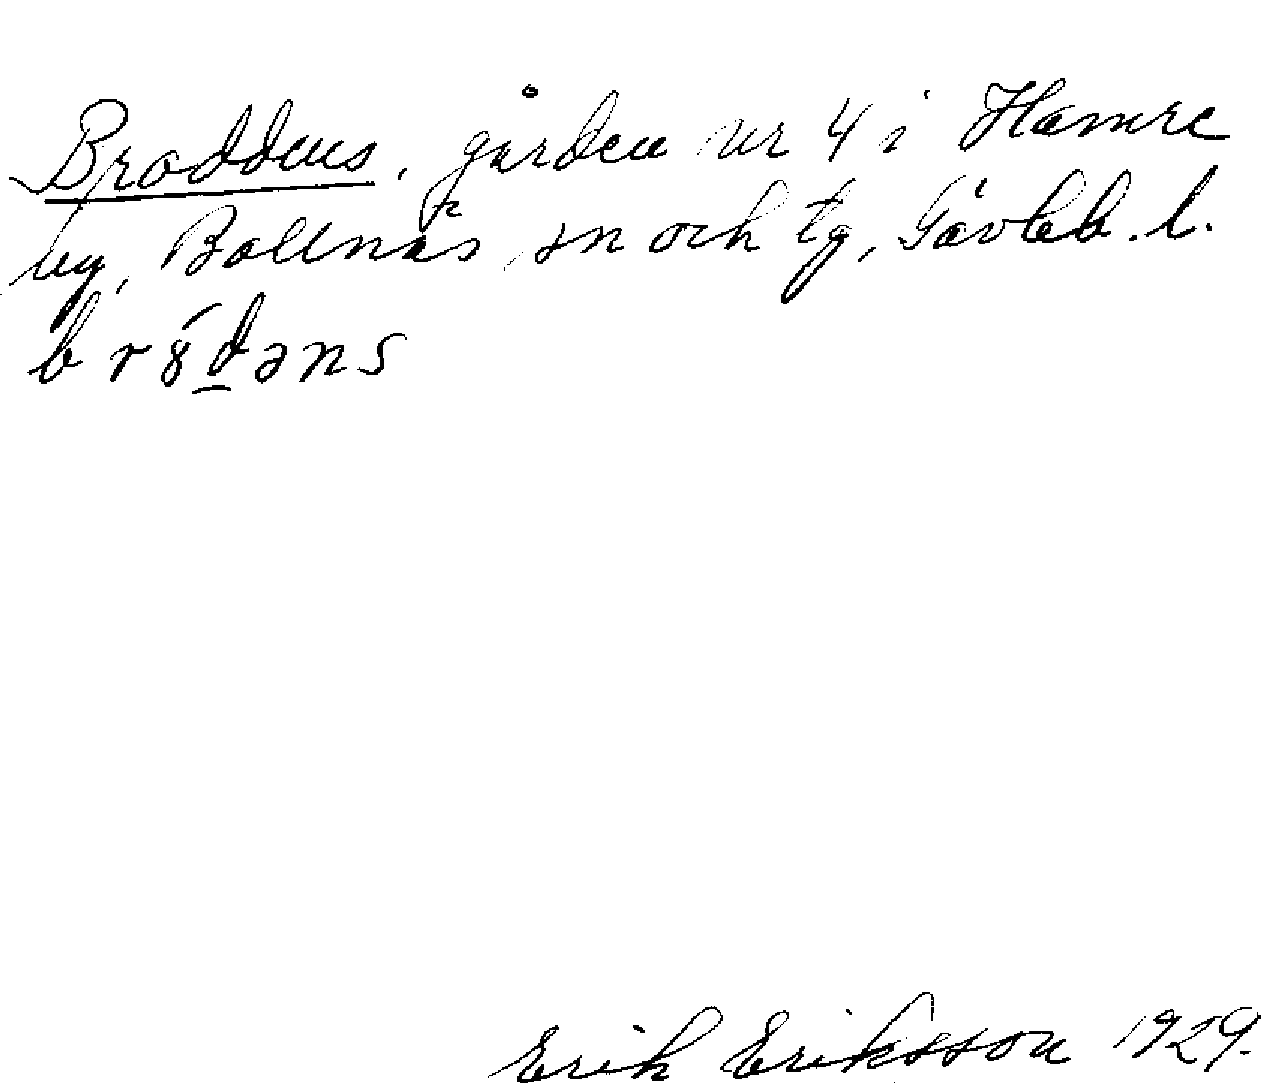 Broddens, gården nr 4 i Hamre
by, Bollnäs sn och tg, Gävleb. l.
br8́d̲əns
Erik Eriksson 1929.